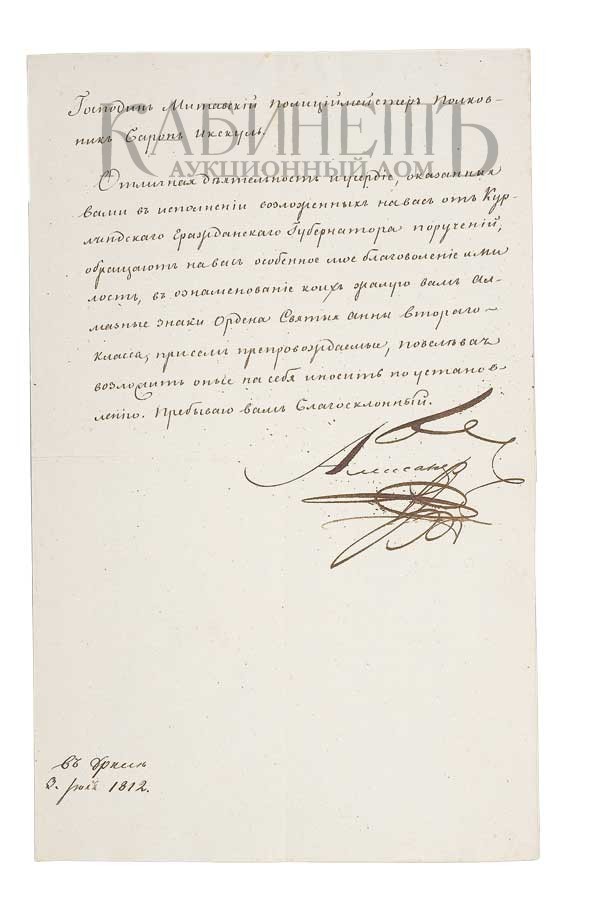 КАБИНЕТЪ
АУКЦИОННЫЙ ДОМ
Господинъ Митавскій Полиціймейстеръ Полков-
никъ Баронъ Икскуль.
Отличная дѣятельность и усердіе, оказанныя
вами въ исполненіи возложенныхъ на васъ отъ Кур-
ляндскаго Гражданскаго Губернатора порученій,
обращаютъ на васъ особенное мое благоволеніе и ми-
лость, въ ознаменованіе коихъ жалую вамъ ал-
мазные знаки Ордена Святыя Анны втораго
класса, присемъ препровождаемые, повелѣвая
возложить оные на себя и носить по установ-
ленію. Пребываю вамъ благосклонный.
Александръ
въ
3. 1812.